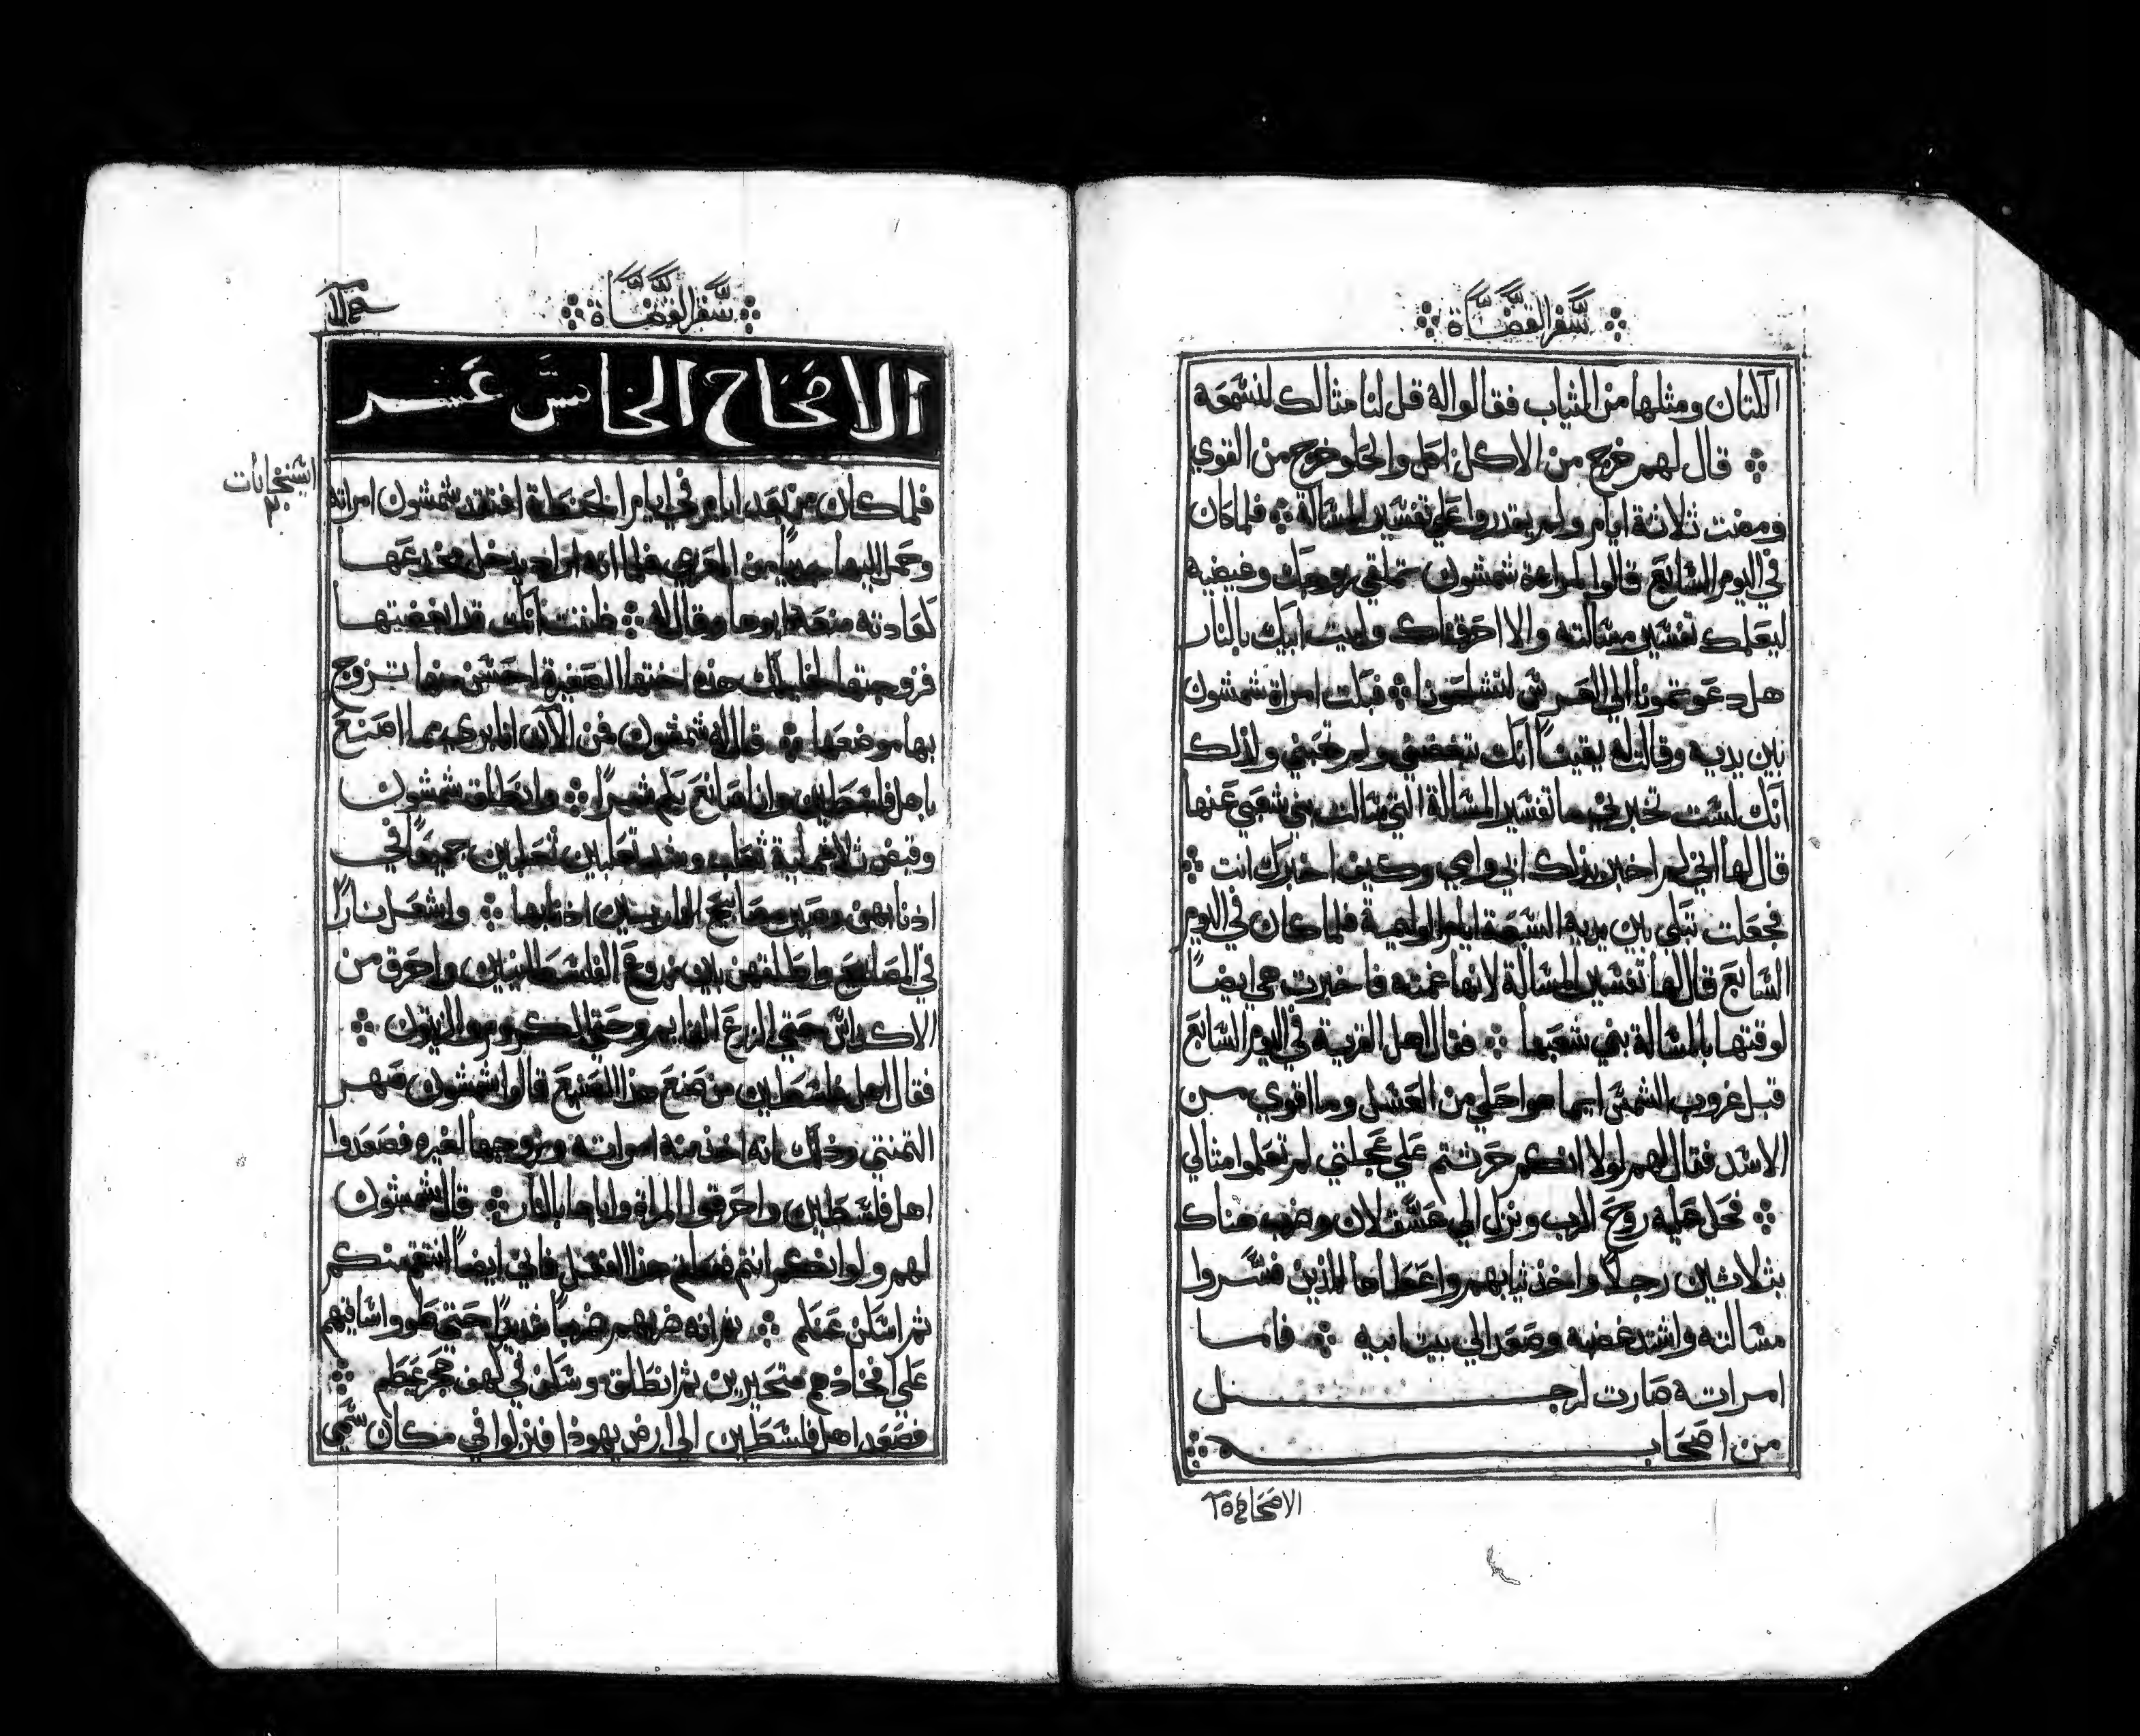 سفر القضاة
الكتان ومثلها من الثياب فقالوا له قل لنا مثالك لنسمعه
قال لهم خرج من الاكل اكل والحلو خرج من القوي
ومضت ثلاثة ايام ولم يقدروا علي تفسير المسالة فلما كان
في اليوم السابع قالوا لامراة شمشون تملقي زوجك وغيضيه
ليعلمك تفسير مسالته والا احرقناك وبيت ابيك بالنار
هل دعوتمونا الي العرس لتسلبونا فبكت امراة شمشون
بين يديه وقالت له يقيناً انك تبغضني ولم تحبني ولذلك
انك لست تخبرني ما تفسير المسالة التي سالت بني شعبي عنها
قال لها اني لم اخبر بذلك ابي وامي وكيف اخبرك انت
فجعلت تبكي بين يديه السبعة ايام الوليمة فلما كان في اليوم
السابع قال لها تفسير المسالة لانها غمته فاخبرت هي ايضاً
لوقتها بالمسالة بني شعبها فقال اهل القرية في اليوم السابع
قبل غروب الشمس ايما هو احلي من العسل وما اقوي من
الاسد فقال لهم لولا انكم حرثتم علي عجلتي لم تعلموا مثالي
فحل عليه روح الرب ونزل الي عسقلان وضرب هناك
بثلاثين رجلاً واخذ ثيابهم واعطاها للذين فسروا
مسالته واشتد غضبه وصعد الي بيت ابيه فاما
امراته صارت لرجل
من اصحابه
الاصحاح ١٥
سفر القضاة
الاصحاح الخامس عشر
فلما كان من بعد ايام في ايام الحنطة افتقد شمشون امراته
وحمل اليها جدياً من المعزي فلما انه اراد يدخل مخدعها
كعادته منعه ابوها وقال له ظننت انك قد ابغضتها
فزوجتها لخليلك هذه اختها الصغيرة احسن منها تزوج
بها موضعها قال له شمشون من الآن انا بري مما اصنع
باهل فلسطين وانا صانع بكم شراً وانطلق شمشون
وقبض ثلاثماية ثعلب وشد ثعلبين ثعلبين جميعاً في
اذنابهن وصير مصابيح النار بين اذنابها واشعل ناراً
في المصابيح واطلقهن بين زروع الفلسطينيين واحرق من
الاكداس حتي الزرع القايم وحتي الكروم والزيتون
فقال اهل فلسطين من صنع هذا الصنيع قالوا شمشون صهر
التمنتي وذلك انه اخذ منه امراته وزوجها لغيره فصعدوا
اهل فلسطين واحرقوا المراة واباها بالنار قال شمشون
لهم ولو انكم انتم فعلتم هذا الفعل فاني ايضاً انتقم منكم
ثم اسكن عنكم ثم انه ضربهم ضرباً شديداً حتي طووا ساقيهم
علي افخاذهم متحيرين ثم انطلق وسكن في كهف حجر عيطم
فصعد اهل فلسطين الي ارض يهوذا فنزلوا في مكان سمي